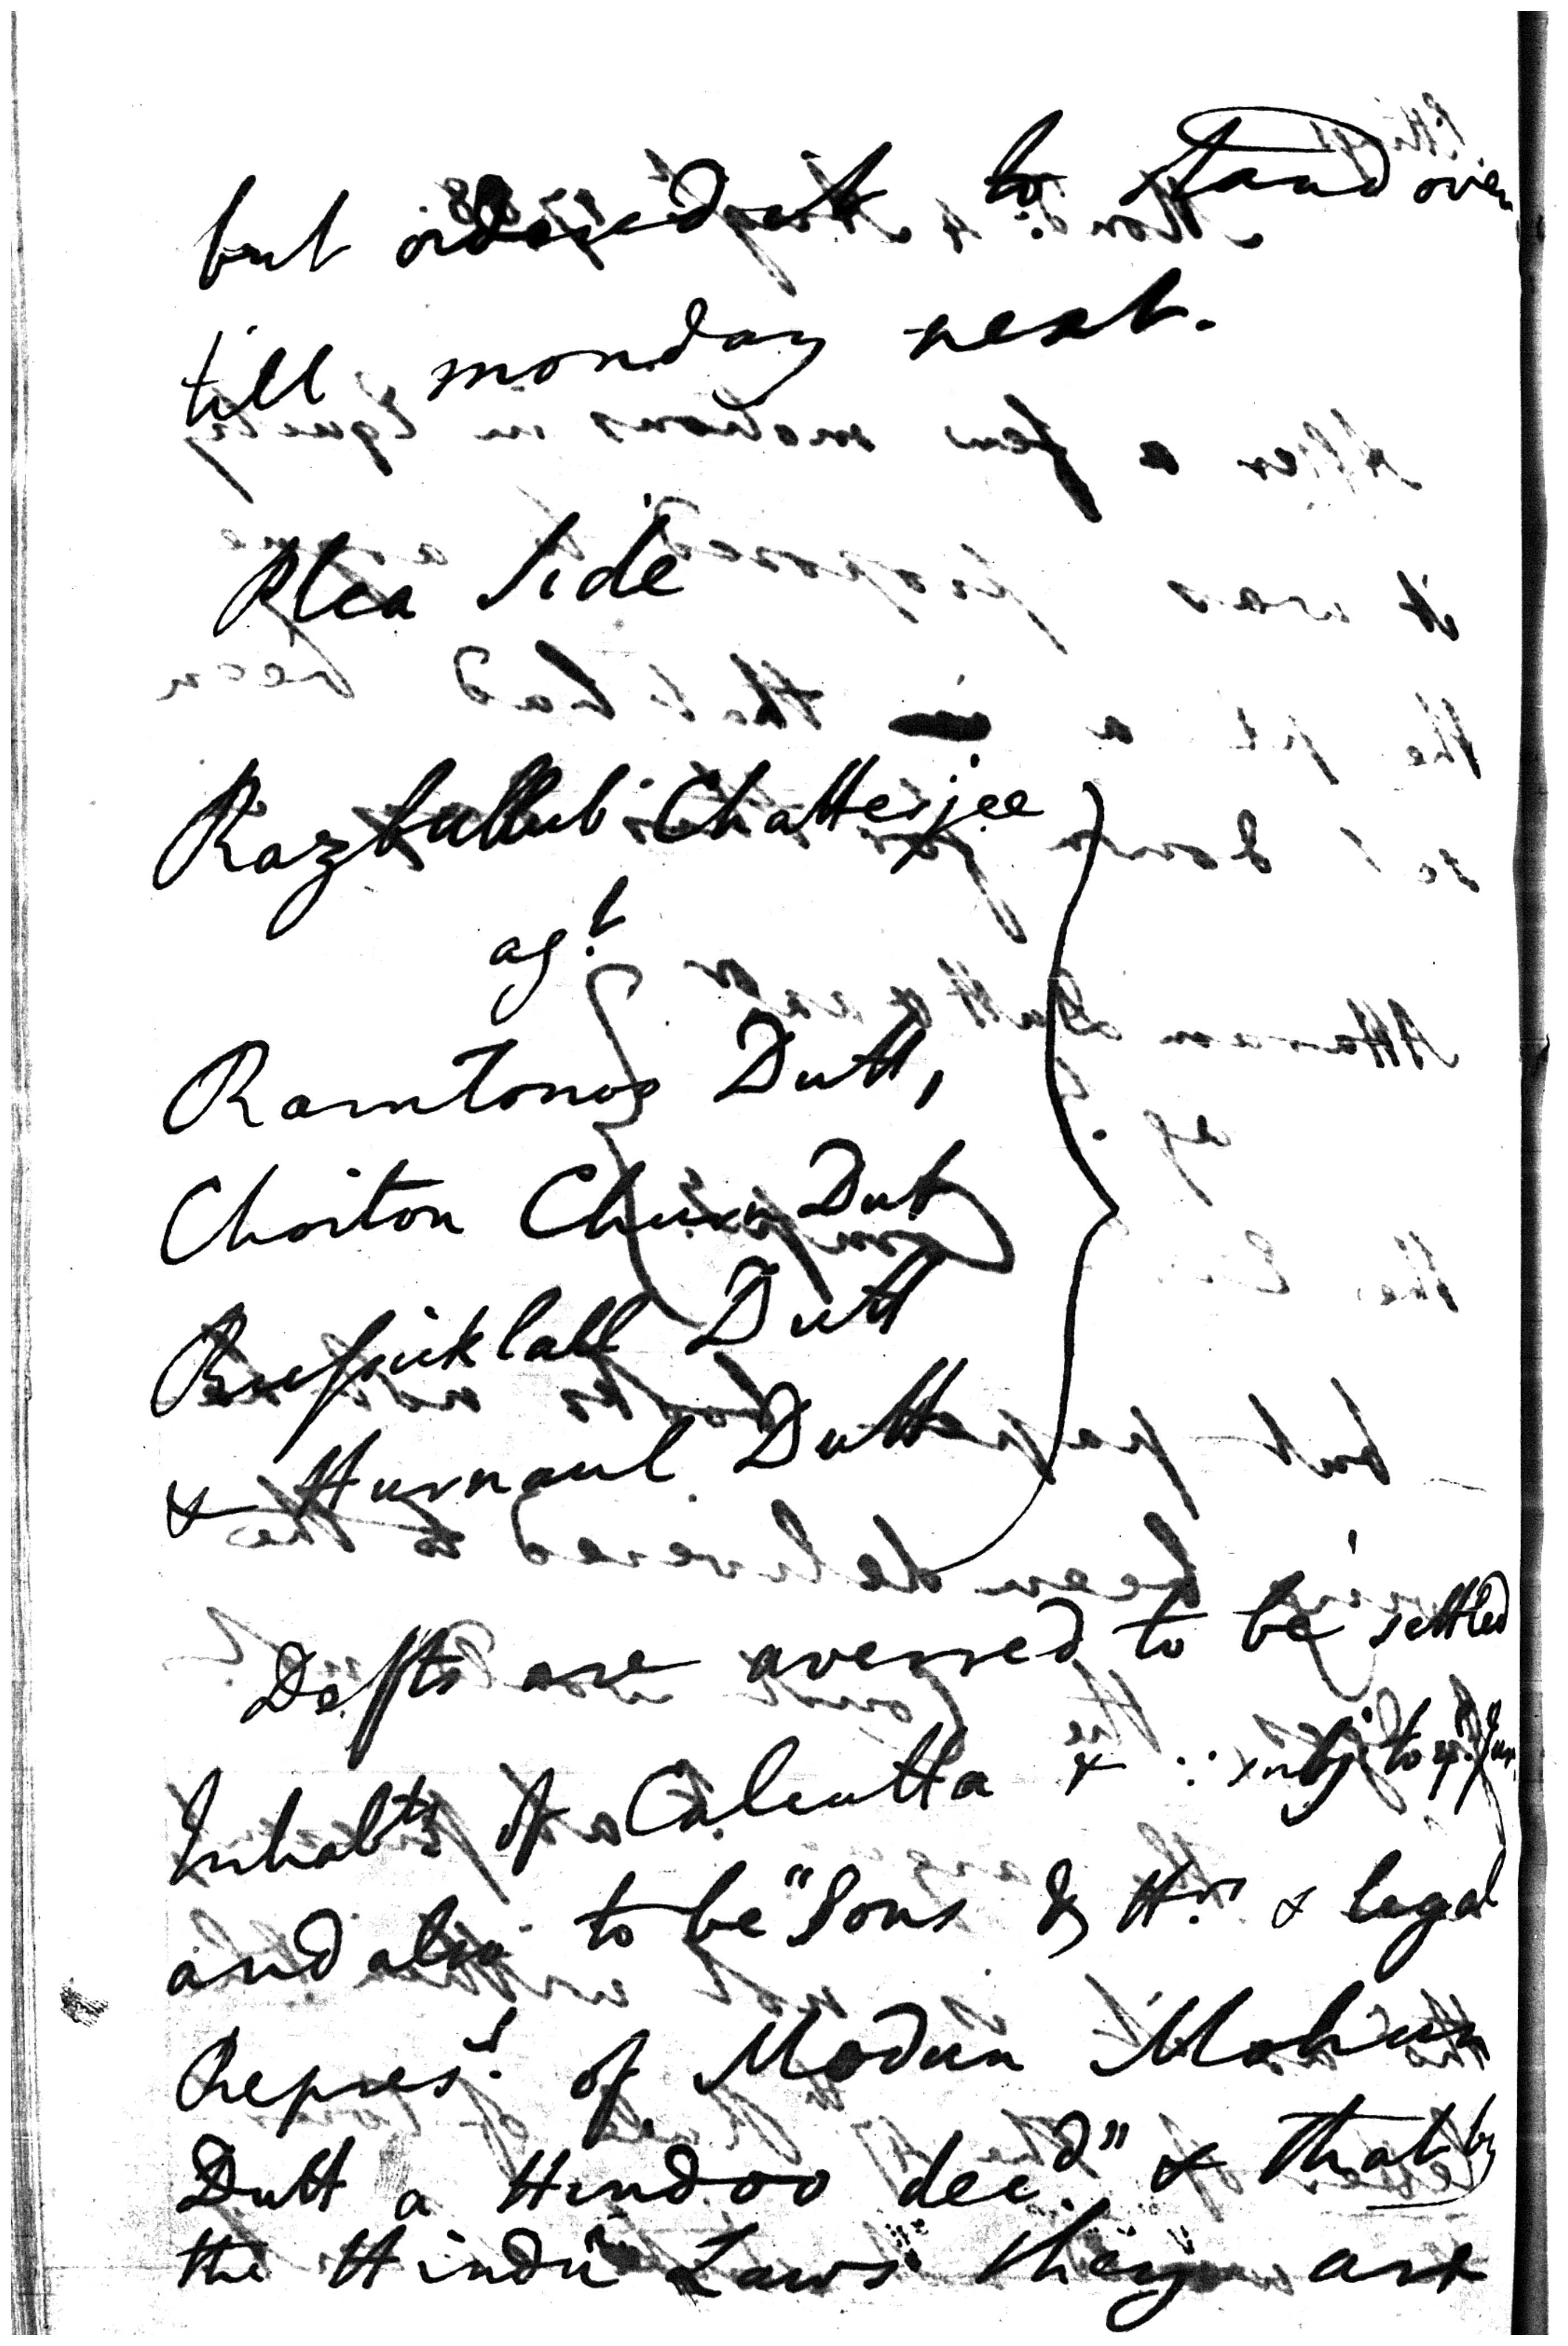 but ordered it to stand over
till monday next.
Plea Side
Razbullub Chatterjee
agt.
Ramtonoo Dutt,
Choiton Churn Dut
Russicklall Dutt
& Hurnaul Dutt
Defts are averred to be settled
Inhabts of Calcutta & ∴ subj. to ye. Jur.
and also to be "Sons & Hrs & legal
Represt. of Modun Mohun
Dutt a Hindoo decd." & that by
the Hindu Laws they are